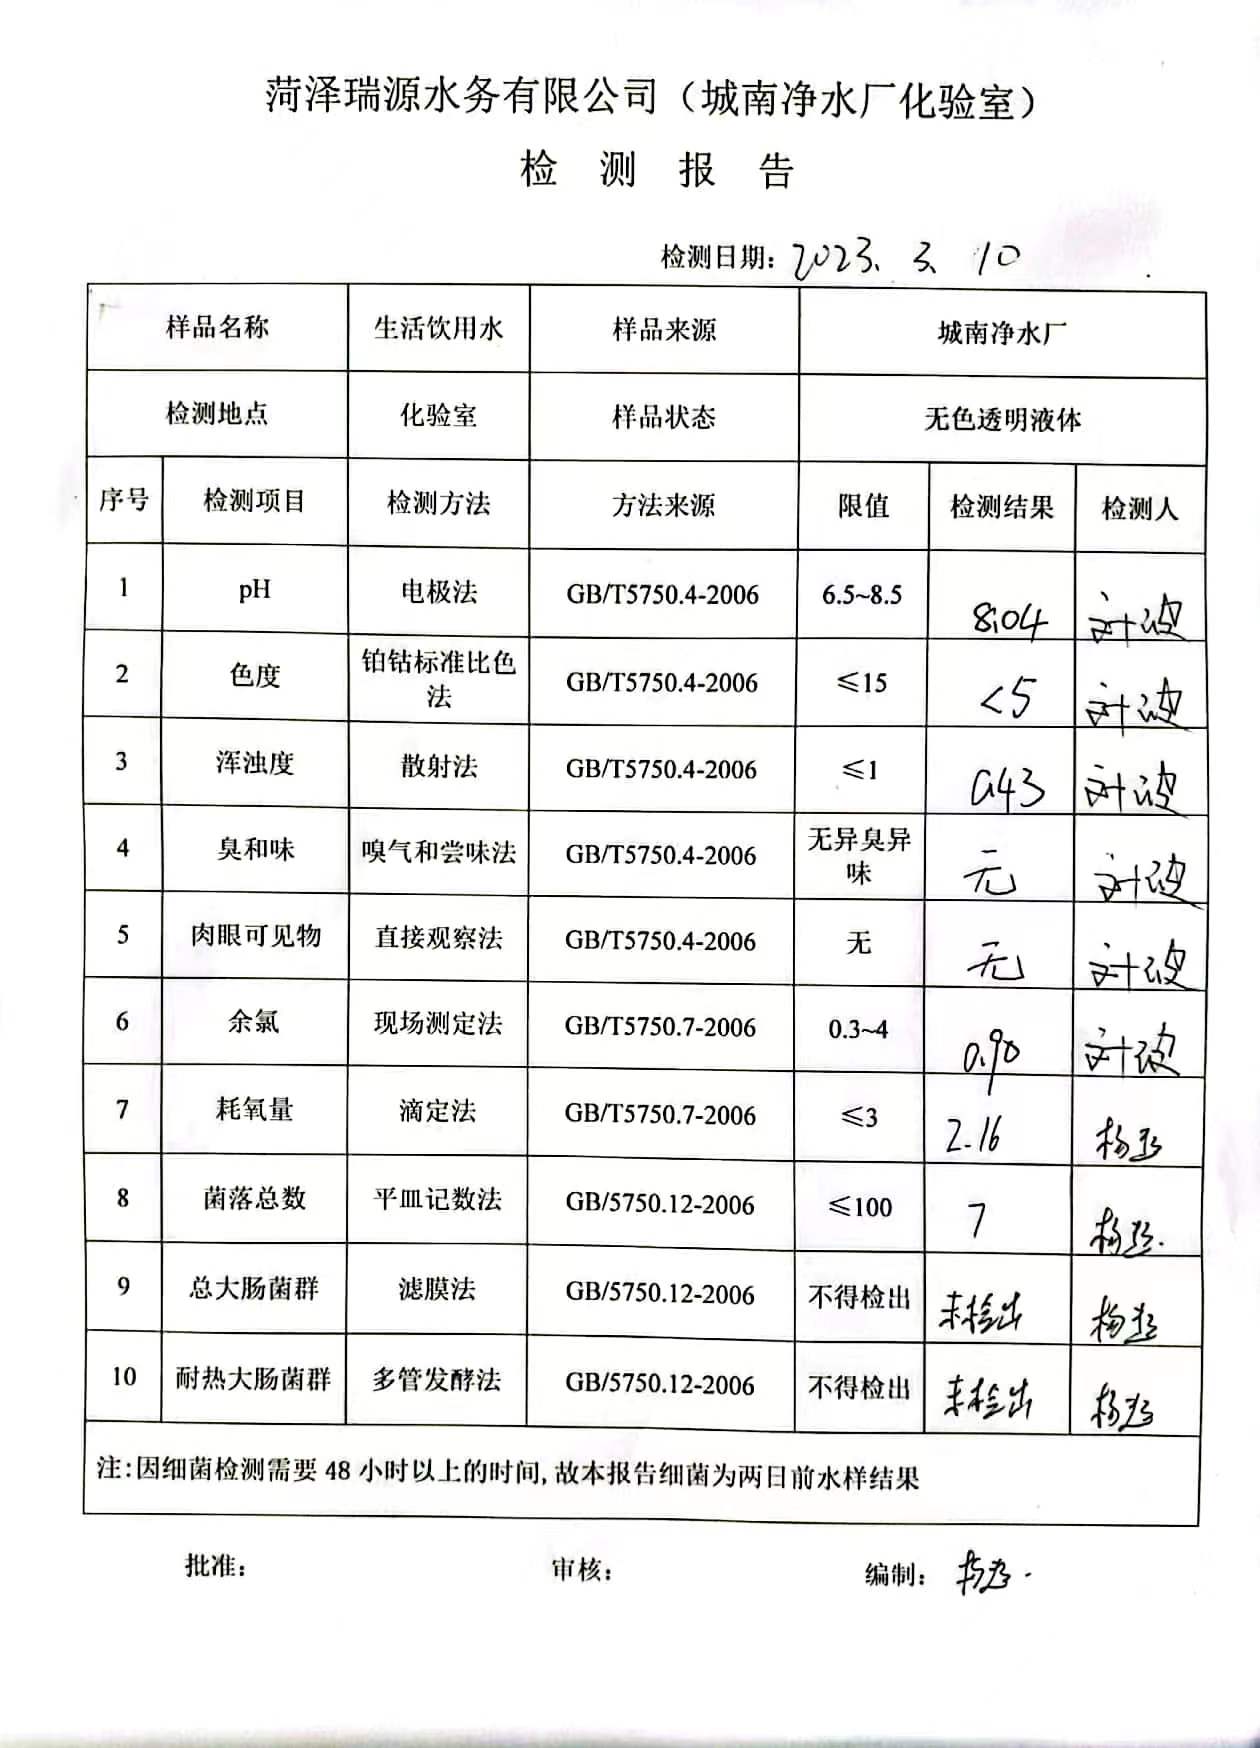 菏泽瑞源水务有限公司（城南净水厂化验室）
检 测 报 告
检测日期：2023. 3. 10
样品名称 生活饮用水 样品来源 城南净水厂
检测地点 化验室 样品状态 无色透明液体
序号 检测项目 检测方法 方法来源 限值 检测结果 检测人
1 pH 电极法 GB/T5750.4-2006 6.5~8.5 8.04
2 色度 铂钴标准比色
法 GB/T5750.4-2006 ≤15 <5
3 浑浊度 散射法 GB/T5750.4-2006 ≤1 0.43
4 臭和味 嗅气和尝味法 GB/T5750.4-2006 无异臭异
味 无
5 肉眼可见物 直接观察法 GB/T5750.4-2006 无 无
6 余氯 现场测定法 GB/T5750.7-2006 0.3~4 0.90
7 耗氧量 滴定法 GB/T5750.7-2006 ≤3 2.16
8 菌落总数 平皿记数法 GB/5750.12-2006 ≤100 7
9 总大肠菌群 滤膜法 GB/5750.12-2006 不得检出 未检出
10 耐热大肠菌群 多管发酵法 GB/5750.12-2006 不得检出 未检出
注:因细菌检测需要 48 小时以上的时间,故本报告细菌为两日前水样结果
批准： 审核： 编制：